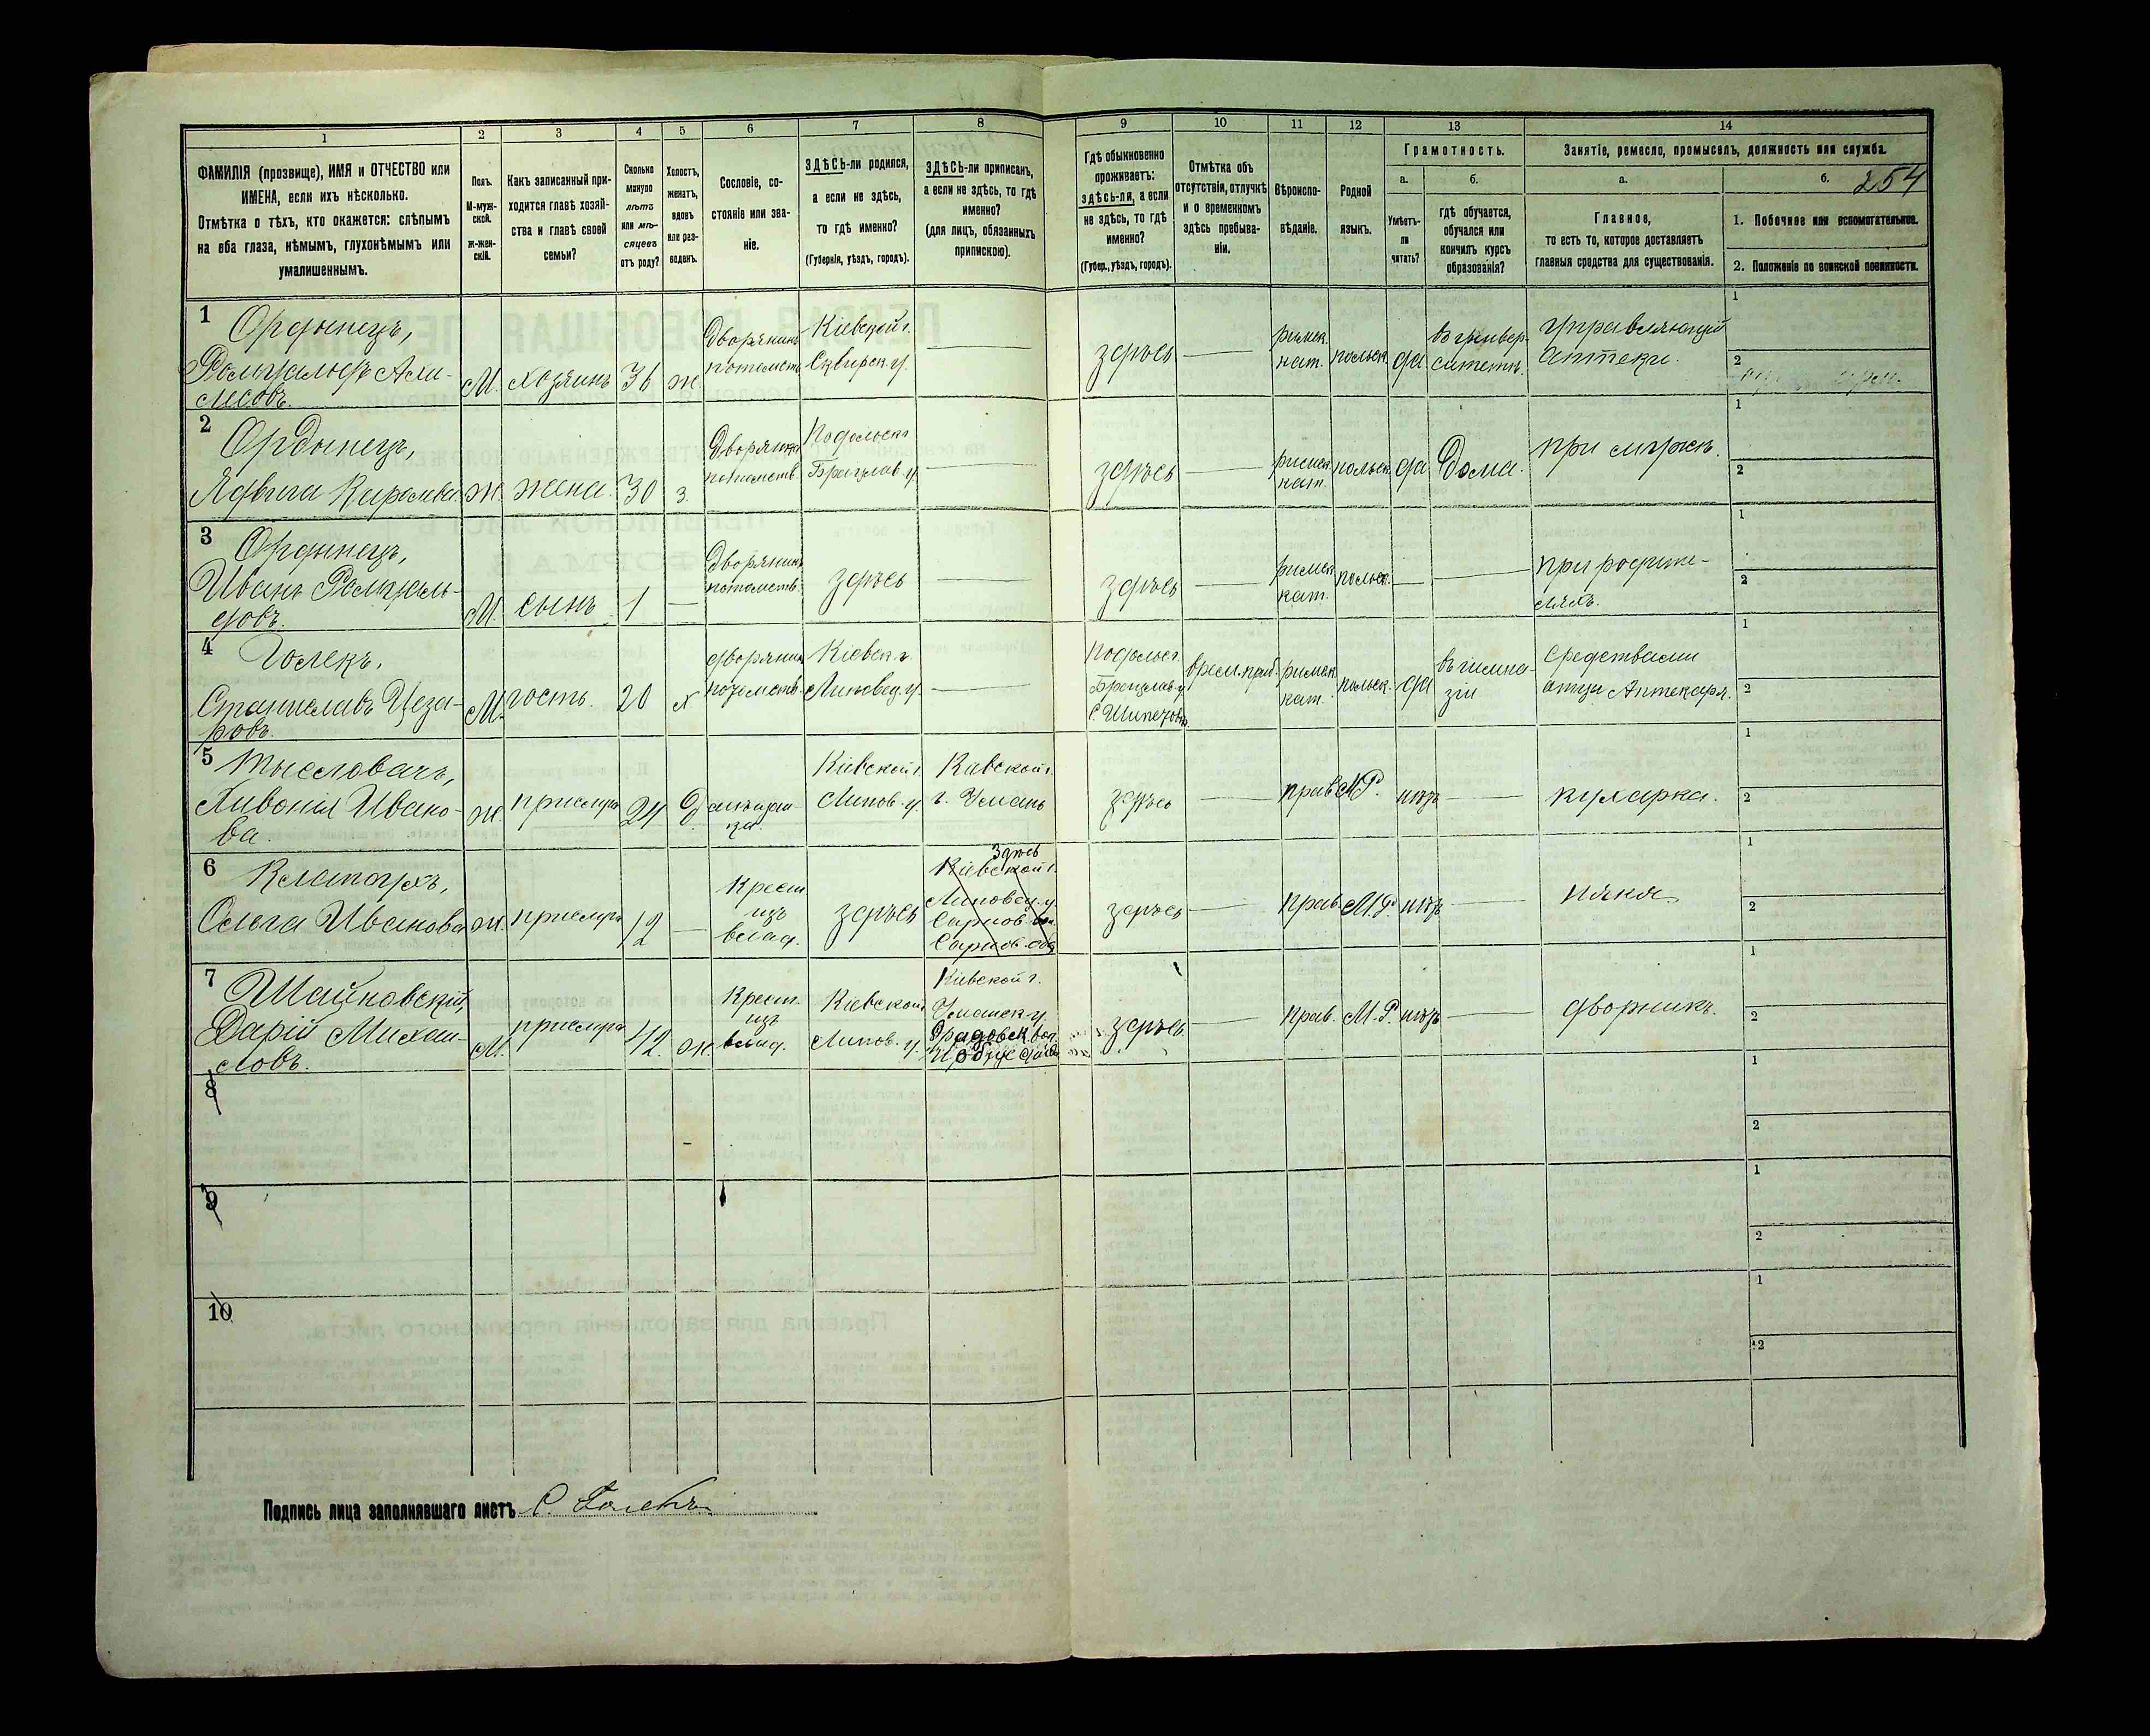 1 2 3 4 5 6 7 8 9 10 11 12 13 14
ФАМИЛІЯ (прозвище), ИМЯ и ОТЧЕСТВО или
ИМЕНА, если ихъ нѣсколько.
Отмѣтка о тѣхъ, кто окажется: слѣпымъ
на оба глаза, нѣмымъ, глухонѣмымъ или
умалишеннымъ.
Полъ.
М-муж-
ской.
Ж-жен-
скій.
Какъ записанный при-
ходится главѣ хозяй-
ства и главѣ своей
семьи?
Сколько
минуло
лѣтъ
или мѣ-
сяцевъ
отъ роду?
Холостъ,
женатъ,
вдовъ
или раз-
веденъ.
Сословіе, со-
стояніе или зва-
ніе.
ЗДѢСЬ-ли родился,
а если не здѣсь,
то гдѣ именно?
(Губернія, уѣздъ, городъ).
ЗДѢСЬ-ли приписанъ,
а если не здѣсь, то гдѣ
именно?
(для лицъ, обязанныхъ
припискою).
Гдѣ обыкновенно
проживаетъ:
здѣсь-ли, а если
не здѣсь, то гдѣ
именно?
(Губер., уѣздъ, городъ).
Отмѣтка объ
отсутствіи, отлучкѣ
и о временномъ
здѣсь пребыва-
ніи.
Вѣроиспо-
вѣданіе.
Родной
языкъ.
Грамотность.
а.
Умѣетъ-
ли
читать?
б.
гдѣ обучается,
обучался или
кончилъ курсъ
образованія?
Занятіе, ремесло, промыселъ, должность или служба.
а.
Главное,
то есть то, которое доставляетъ
главныя средства для существованія.
б. 254
1. Побочное или вспомогательное.
2. Положеніе по воинской повинности.
1 Ордынецъ,
Ромуальдъ
М. хозяинъ 36 ж.
Дворянинъ
потомств.
Кіевской г.
Сквирск. у.
здѣсь
римск.
кат.
польск. да
въ универ-
ситетѣ.
Управляющій
аптеки.
1
2
2 Ордынецъ,
Ядвига Карлова ж. жена. 30 з.
Дворянка
потомств.
Подольск. г.
Брацлав. у.
здѣсь
римск.
кат.
польск. да Дома. при мужѣ.
1
2
3 Ордынецъ,
Иванъ Ромуаль-
довъ. М. сынъ 1
Дворянинъ
потомств.
здѣсь
здѣсь
римск.
кат.
польск.
при родите-
ляхъ.
1
2
4 Голекъ,
Станиславъ Цеза-
ровъ. М. гость. 20 х
дворянин.
потомств.
Кіевск. г.
Липовец. у.
Подольс. г.
Брацлав. у.
с.
врем. преб.
римск.
кат.
польск. да
въ гимна-
зіи
Средствами
отца Аптекаря.
1
2
5
Ивано-
ва. ж. прислуга 24 д
Кіевской г.
Липов. у.
Кіевской г.
г. Умань
здѣсь прав. М.Р. нѣтъ кухарка.
1
2
6
Ольга Иванова ж. прислуга 12
Крест.
изъ
влад.
здѣсь
здѣсь
Кіевской г.
Липовец. у.
здѣсь прав. М.Р. нѣтъ няня
1
2
7 Шайновскій,
Дарій Михаи-
ловъ. М. прислуга 42 ж.
Крест.
изъ
влад.
Кіевской
Липов. у.
Кіевской г.
Уманск. у.
здѣсь прав. М.Р. нѣтъ дворникъ.
1
2
8 1
2
9 1
2
10 1
2
Подпись лица заполнявшаго листъ С. Голекъ